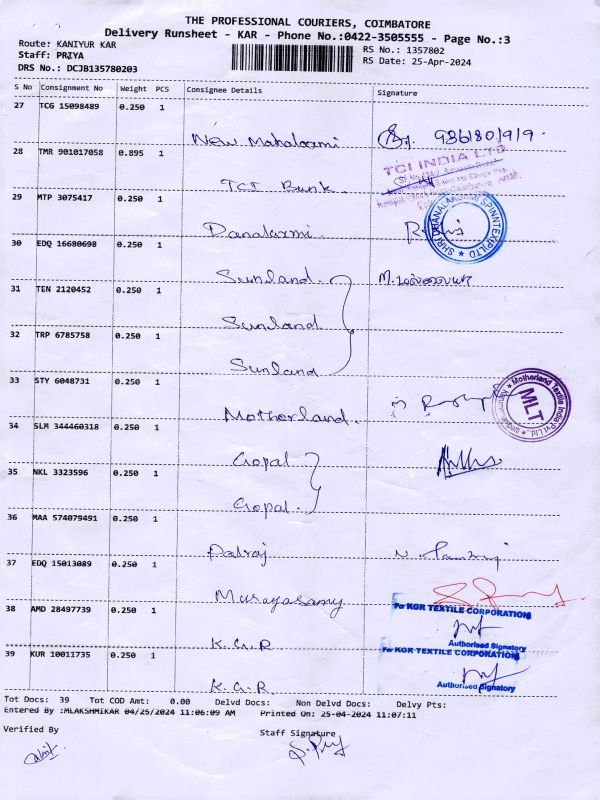 THE PROFESSIONAL COURIERS, COIMBATORE
Delivery Runsheet - KAR - Phone No.:0422-3505555 - Page No.:3
Route: KANIYUR KAR
RS No.: 1357802
Staff: PRIYA
RS Date: 25-Apr-2024
DRS No.: DCJB135780203
S No Consignment No Weight PCS Consignee Details Signature
27 TCG 15098489 0.250 1
New Mahalaxmi
28 TMR 901017058 0.895 1
TCI INDIA LTD.
TCI Bank
29 MTP 3075417 0.250 1
Danalaxmi
SHRI DHANALAKSHMI SPINNTEX(P)LTD
30 EDQ 16680698 0.250 1
Sunland
31 TEN 2120452 0.250 1
Sunland
32 TRP 6785758 0.250 1
Sunland
33 STY 6048731 0.250 1
Motherland
Motherland Textile India Pvt Ltd.,
MLT
34 SLM 344460318 0.250 1
Gopal
35 NKL 3323596 0.250 1
Gopal
36 MAA 574079491 0.250 1
Palraj
37 EDQ 15013089 0.250 1
Murugasamy
For KGR TEXTILE CORPORATION
38 AMD 28497739 0.250 1
K.G.R
Authorised Signatory
For KGR TEXTILE CORPORATION
39 KUR 10011735 0.250 1
K.G.R
Authorised Signatory
Tot Docs: 39 Tot COD Amt: 0.00 Delvd Docs: Non Delvd Docs: Delvy Pts:
Entered By :MLAKSHMIKAR 04/25/2024 11:06:09 AM Printed On: 25-04-2024 11:07:11
Verified By
Staff Signature